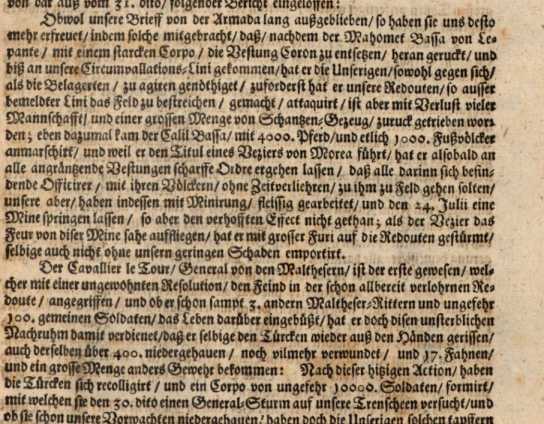 von dar auß vom 31. dito/ folgender Bericht eingeloffen:
Obwol unsere Brieff von der Armada lang außgeblieben/ so haben sie uns desto
mehr erfreuet/ indem solche mitgebracht/ daß/ nachdem der Mahomet Bassa von Le-
pante/ mit einem starcken Corpo/ die Vestung Coron zu entsetzen/ heran geruckt/ und
biß an unsere Circumvallations-Lini gekommen/ hat er die Unserigen/ sowohl gegen sich/
als die Belagerten/ zu agiren genöthiget/ zuforderst hat er unsere Redouten/ so ausser
bemeldter Lini das Feld zu bestreichen/ gemacht/ attaquirt/ ist aber mit Verlust vieler
Mannschafft/ und einer grossen Menge von Schantzen-Gezeug/ zuruck getrieben wor-
den; eben dazumal kam der Calil Bassa/ mit 4000. Pferd/ und etlich 1000. Fußvölcker
anmarschirt/ und weil er den Titul eines Veziers von Morea führt/ hat er alsobald an
alle angräntzende Vestungen scharffe Ordre ergehen lassen/ daß alle darinn sich befin-
dende Officirer/ mit ihren Völckern/ ohne Zeitverliehren/ zu ihm zu Feld gehen solten/
unsere aber/ haben indessen mit Minirung/ fleissig gearbeitet/ und den 24. Julii eine
Mine springen lassen/ so aber den verhofften Effect nicht gethan; als der Vezier das
Feur von diser Mine sahe auffliegen/ hat er mit grosser Furi auf die Redouten gestürmt/
selbige auch nicht ohne unsern geringen Schaden emportirt.
Der Cavallier le Tour/ General von den Malthesern/ ist der erste gewesen/ wel-
cher mit einer ungewohnten Resolution/ den Feind in der schon allbereit verlohrnen Re-
doute/ angegriffen/ und ob er schon sampt 3. andern Maltheser-Rittern und ungefehr
100. gemeinen Soldaten/ das Leben darüber eingebüßt/ hat er doch disen unsterblichen
Nachruhm damit verdienet/ daß er selbige den Türcken wieder auß den Händen gerissen/
auch derselben über 400. niedergehauen/ noch vilmehr verwundet/ und 17. Fahnen/
und ein grosse Menge anders Gewehr bekommen: Nach dieser hitzigen Action/ haben
die Türcken sich recolligirt/ und ein Corpo von ungefehr 10000. Soldaten/ formirt/
mit welchen sie den 30. dito einen General-Sturm auf unsere Trenscheen versucht/ und
ob sie schon unsere Vorwachten niedergehauen/ haben doch die Unserigen solchen tapffern